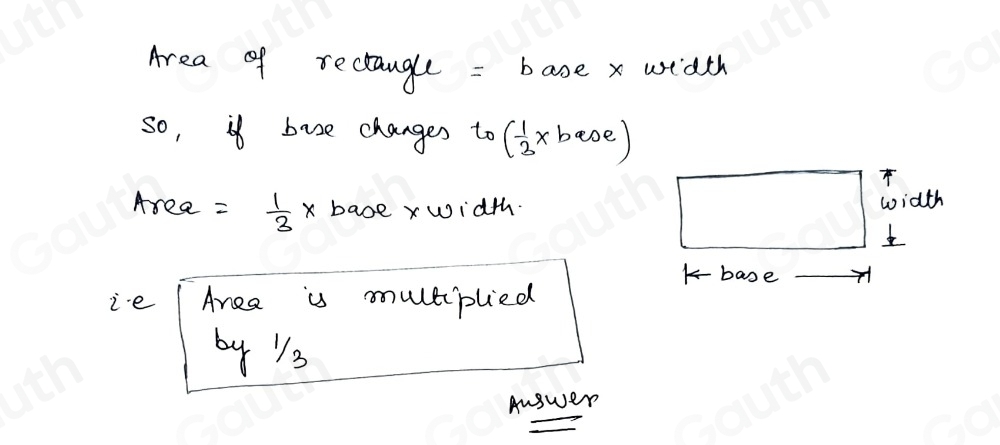 Area of rectangle = base x width
So, if base changes to (1/3 x base)
Area = 1/3 x base x width.
width
base
i.e Area is multiplied
by 1/3
Answer
Gauth